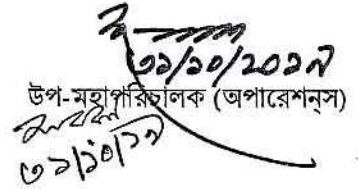 ৩১/১০/২০১৭
উপ-মহাপরিচালক (অপারেশন্স)
৩১/১০/১৭